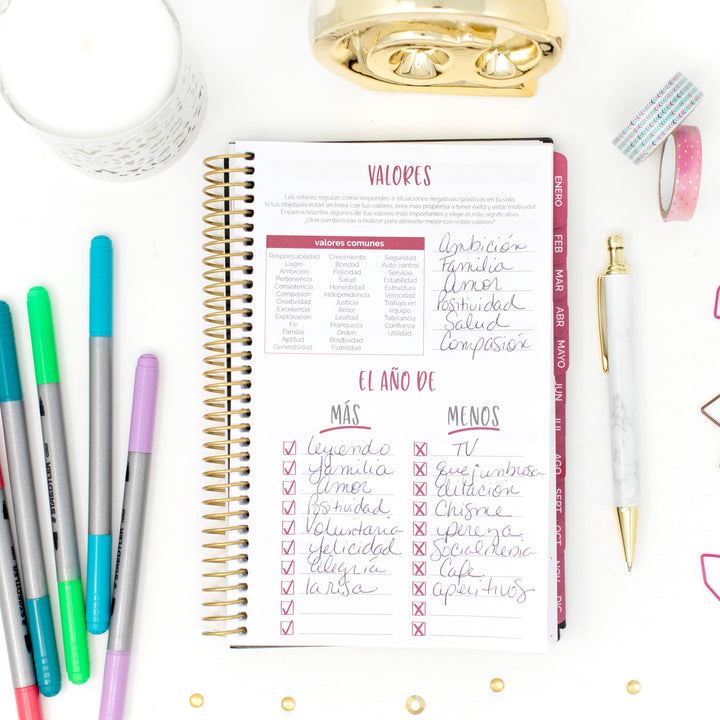 VALORES
Los valores regulan cómo respondes a situaciones negativas/positivas en tu vida.
Si tus objetivos están en línea con tus valores, eres más propensa a tener éxito y estar motivada!
Encierra/escribe algunos de tus valores más importantes y elige el más significativo
¿Qué cambios vas a realizar para alinearte mejor con estos valores?
valores comunes
Responsabilidad Crecimiento Seguridad
Logro Bondad Auto control
Ambición Felicidad Servicio
Pertenencia Salud Estabilidad
Consistencia Honestidad Estructura
Compasión Independencia Velocidad
Creatividad Justicia Trabajo en
Excelencia Amor equipo
Exploración Lealtad Tolerancia
Fe Franqueza Confianza
Familia Orden Utilidad
Aptitud Positividad
Generosidad Fiabilidad
Ambición
Familia
Amor
Positividad
Salud
Compasión
EL AÑO DE
MÁS
leyendo
familia
amor
Positividad
Voluntaria
felicidad
alegría
la risa
MENOS
TV
quejumbrosa
dilación
Chisme
pereza
Social media
Cafe
aperitivos
ENERO
FEB
MAR
ABR
MAYO
JUN
JUL
AGO
SEPT
OCT
NOV
DIC
STAEDTLER
STAEDTLER
STAEDTLER